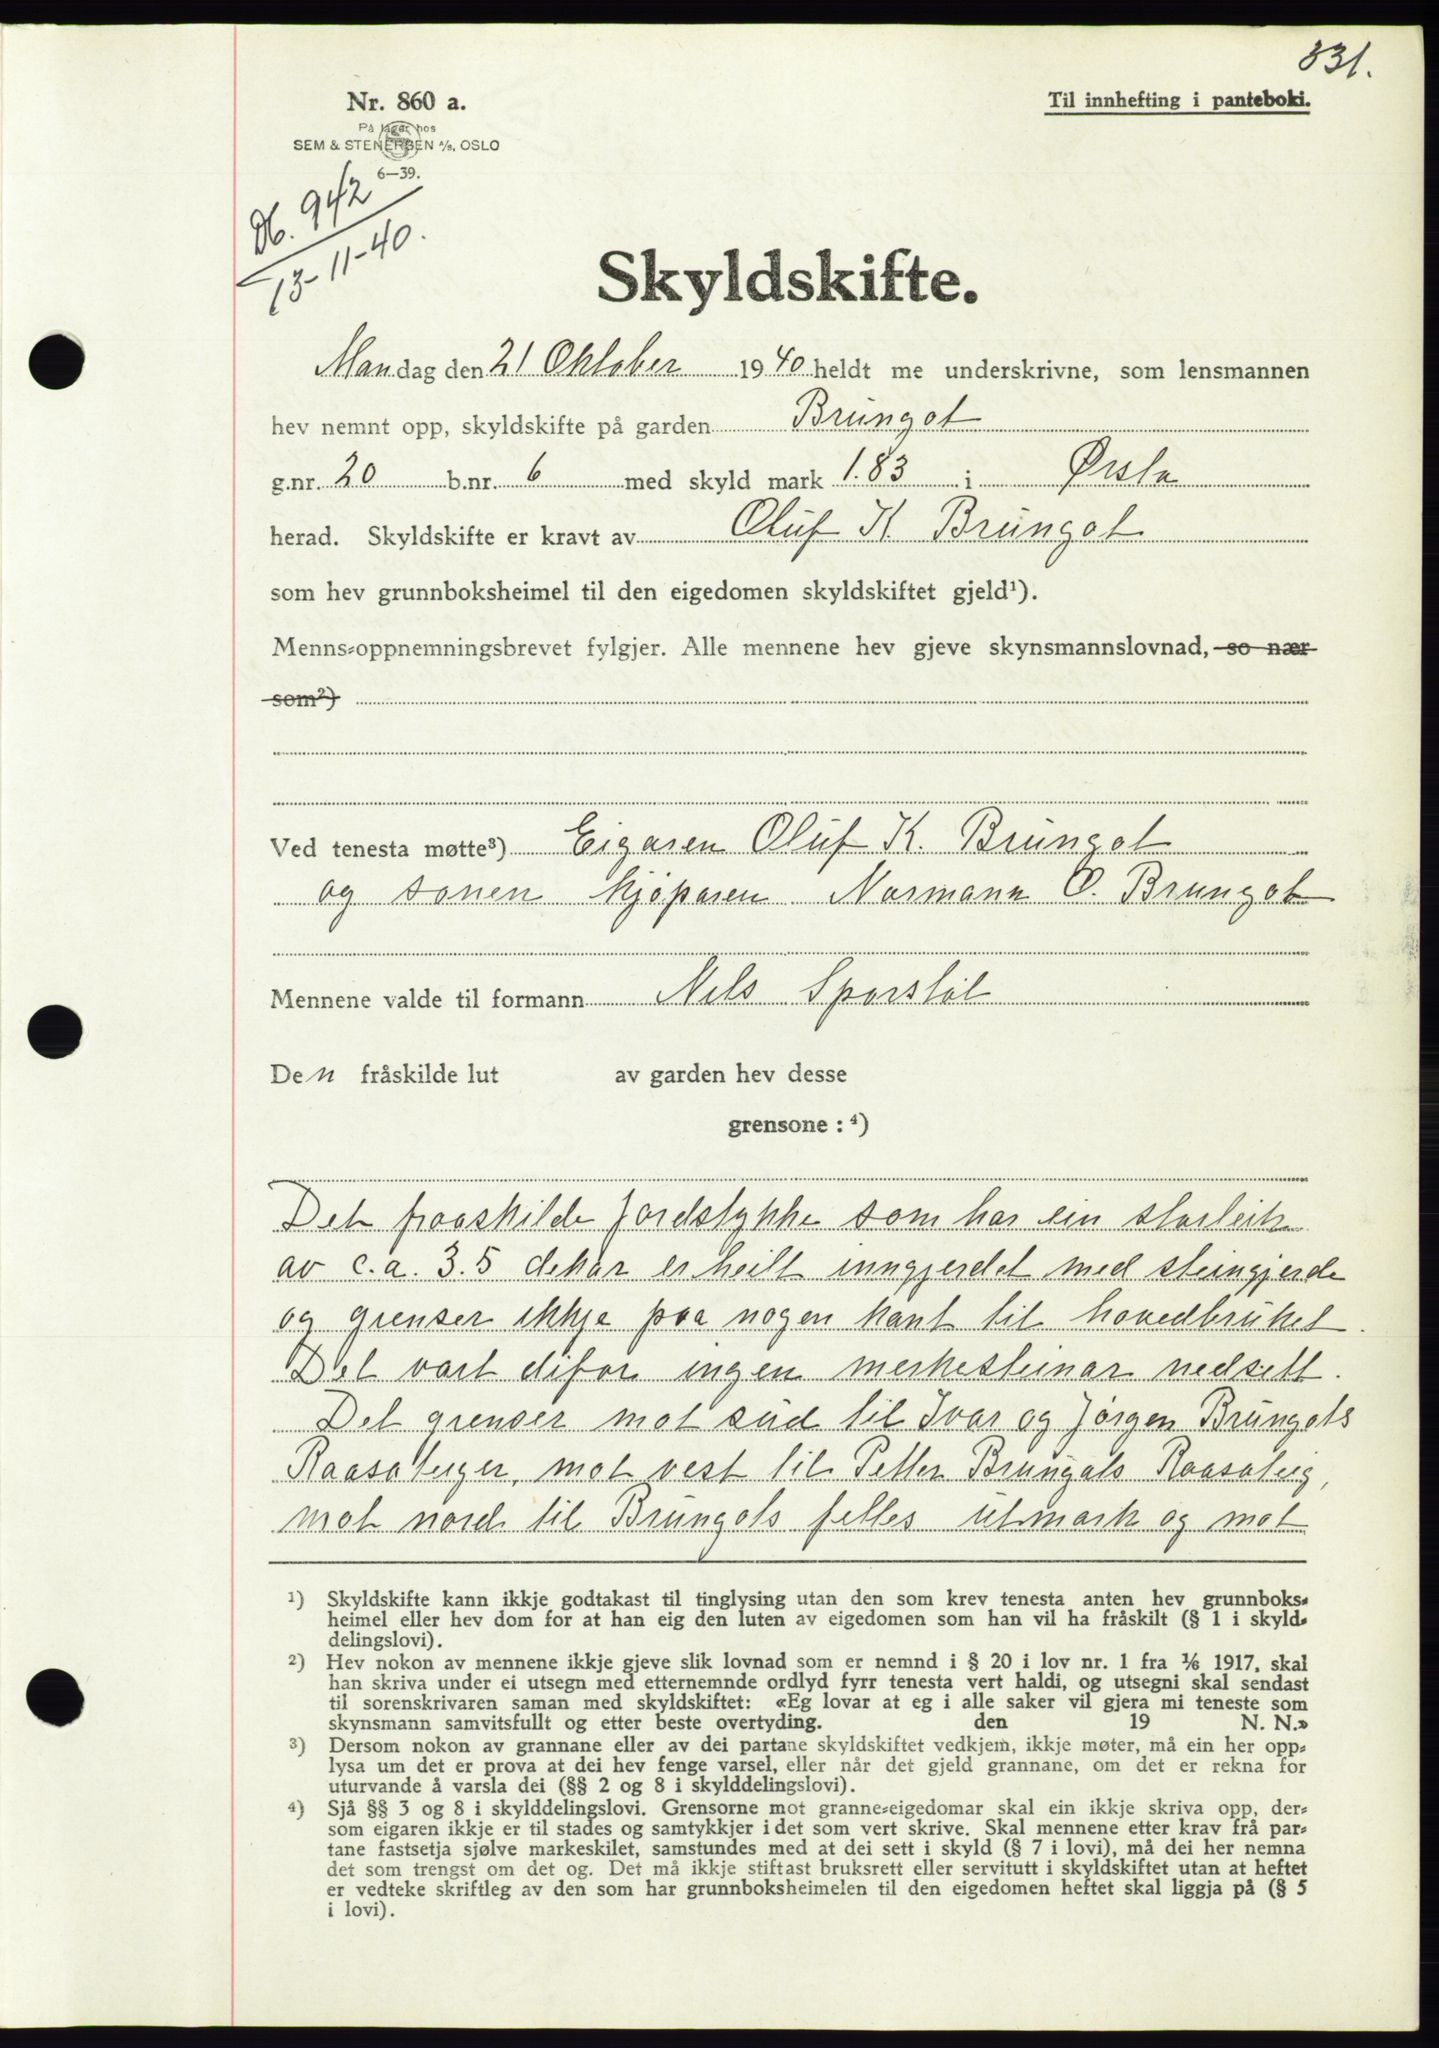 331.
Nr. 860 a.
Til innhefting i panteboki.
På lager hos
SEM & STENERSEN A/S, OSLO
6—39.
Db. 942
13-11-40.
Skyldskifte.
Mandag den 21 Oktober 1940 heldt me underskrivne, som lensmannen
hev nemnt opp, skyldskifte på garden Brungot
g.nr. 20 b.nr. 6 med skyld mark 1.83 i Ørsta
herad. Skyldskifte er kravt av Oluf K. Brungot
som hev grunnboksheimel til den eigedomen skyldskiftet gjeld¹).
Menns=oppnemningsbrevet fylgjer. Alle mennene hev gjeve skynsmannslovnad, so nær
som²)
Ved tenesta møtte³) Eigaren Oluf K. Brungot
og sonen kjøparen Normann O. Brungot
Mennene valde til formann Nils Sporstøl
Den fråskilde lut av garden hev desse
grensone : ⁴)
Det fraaskilde Jordstykke som har ein storleik
av c.a. 3.5 dekar er heilt inngjerdet med steingjerde
og grenser ikkje paa nogen kant til hovedbruket.
Det vart difor ingen merkesteinar nedsett.
Det grenser mot süd til Ivar og Jørgen Brungots
Raasateiger, mot vest til Petter Brungots Raasateig,
mot nord til Brungots felles utmark og mot
¹) Skyldskifte kann ikkje godtakast til tinglysing utan den som krev tenesta anten hev grunnboks=
heimel eller hev dom for at han eig den luten av eigedomen som han vil ha fråskilt (§ 1 i skyld=
delingslovi).
²) Hev nokon av mennene ikkje gjeve slik lovnad som er nemnd i § 20 i lov nr. 1 fra 1/6 1917, skal
han skriva under ei utsegn med etternemnde ordlyd fyrr tenesta vert haldi, og utsegni skal sendast
til sorenskrivaren saman med skyldskiftet: «Eg lovar at eg i alle saker vil gjera mi teneste som
skynsmann samvitsfullt og etter beste overtyding. den 19 N. N.»
³) Dersom nokon av grannane eller av dei partane skyldskiftet vedkjem, ikkje møter, må ein her opp=
lysa um det er prova at dei hev fenge varsel, eller når det gjeld grannane, om det er rekna for
uturvande å varsla dei (§§ 2 og 8 i skylddelingslovi).
⁴) Sjå §§ 3 og 8 i skylddelingslovi. Grensorne mot granne=eigedomar skal ein ikkje skriva opp, der=
som eigaren ikkje er til stades og samtykkjer i det som vert skrive. Skal mennene etter krav frå par=
tane fastsetja sjølve markeskilet, samstundes med at dei sett i skyld (§ 7 i lovi), må dei her nemna
det som trengst om det og. Det må ikkje stiftast bruksrett eller servitutt i skyldskiftet utan at heftet
er vedteke skriftleg av den som har grunnboksheimelen til den eigedomen heftet skal liggja på (§ 5
i lovi).